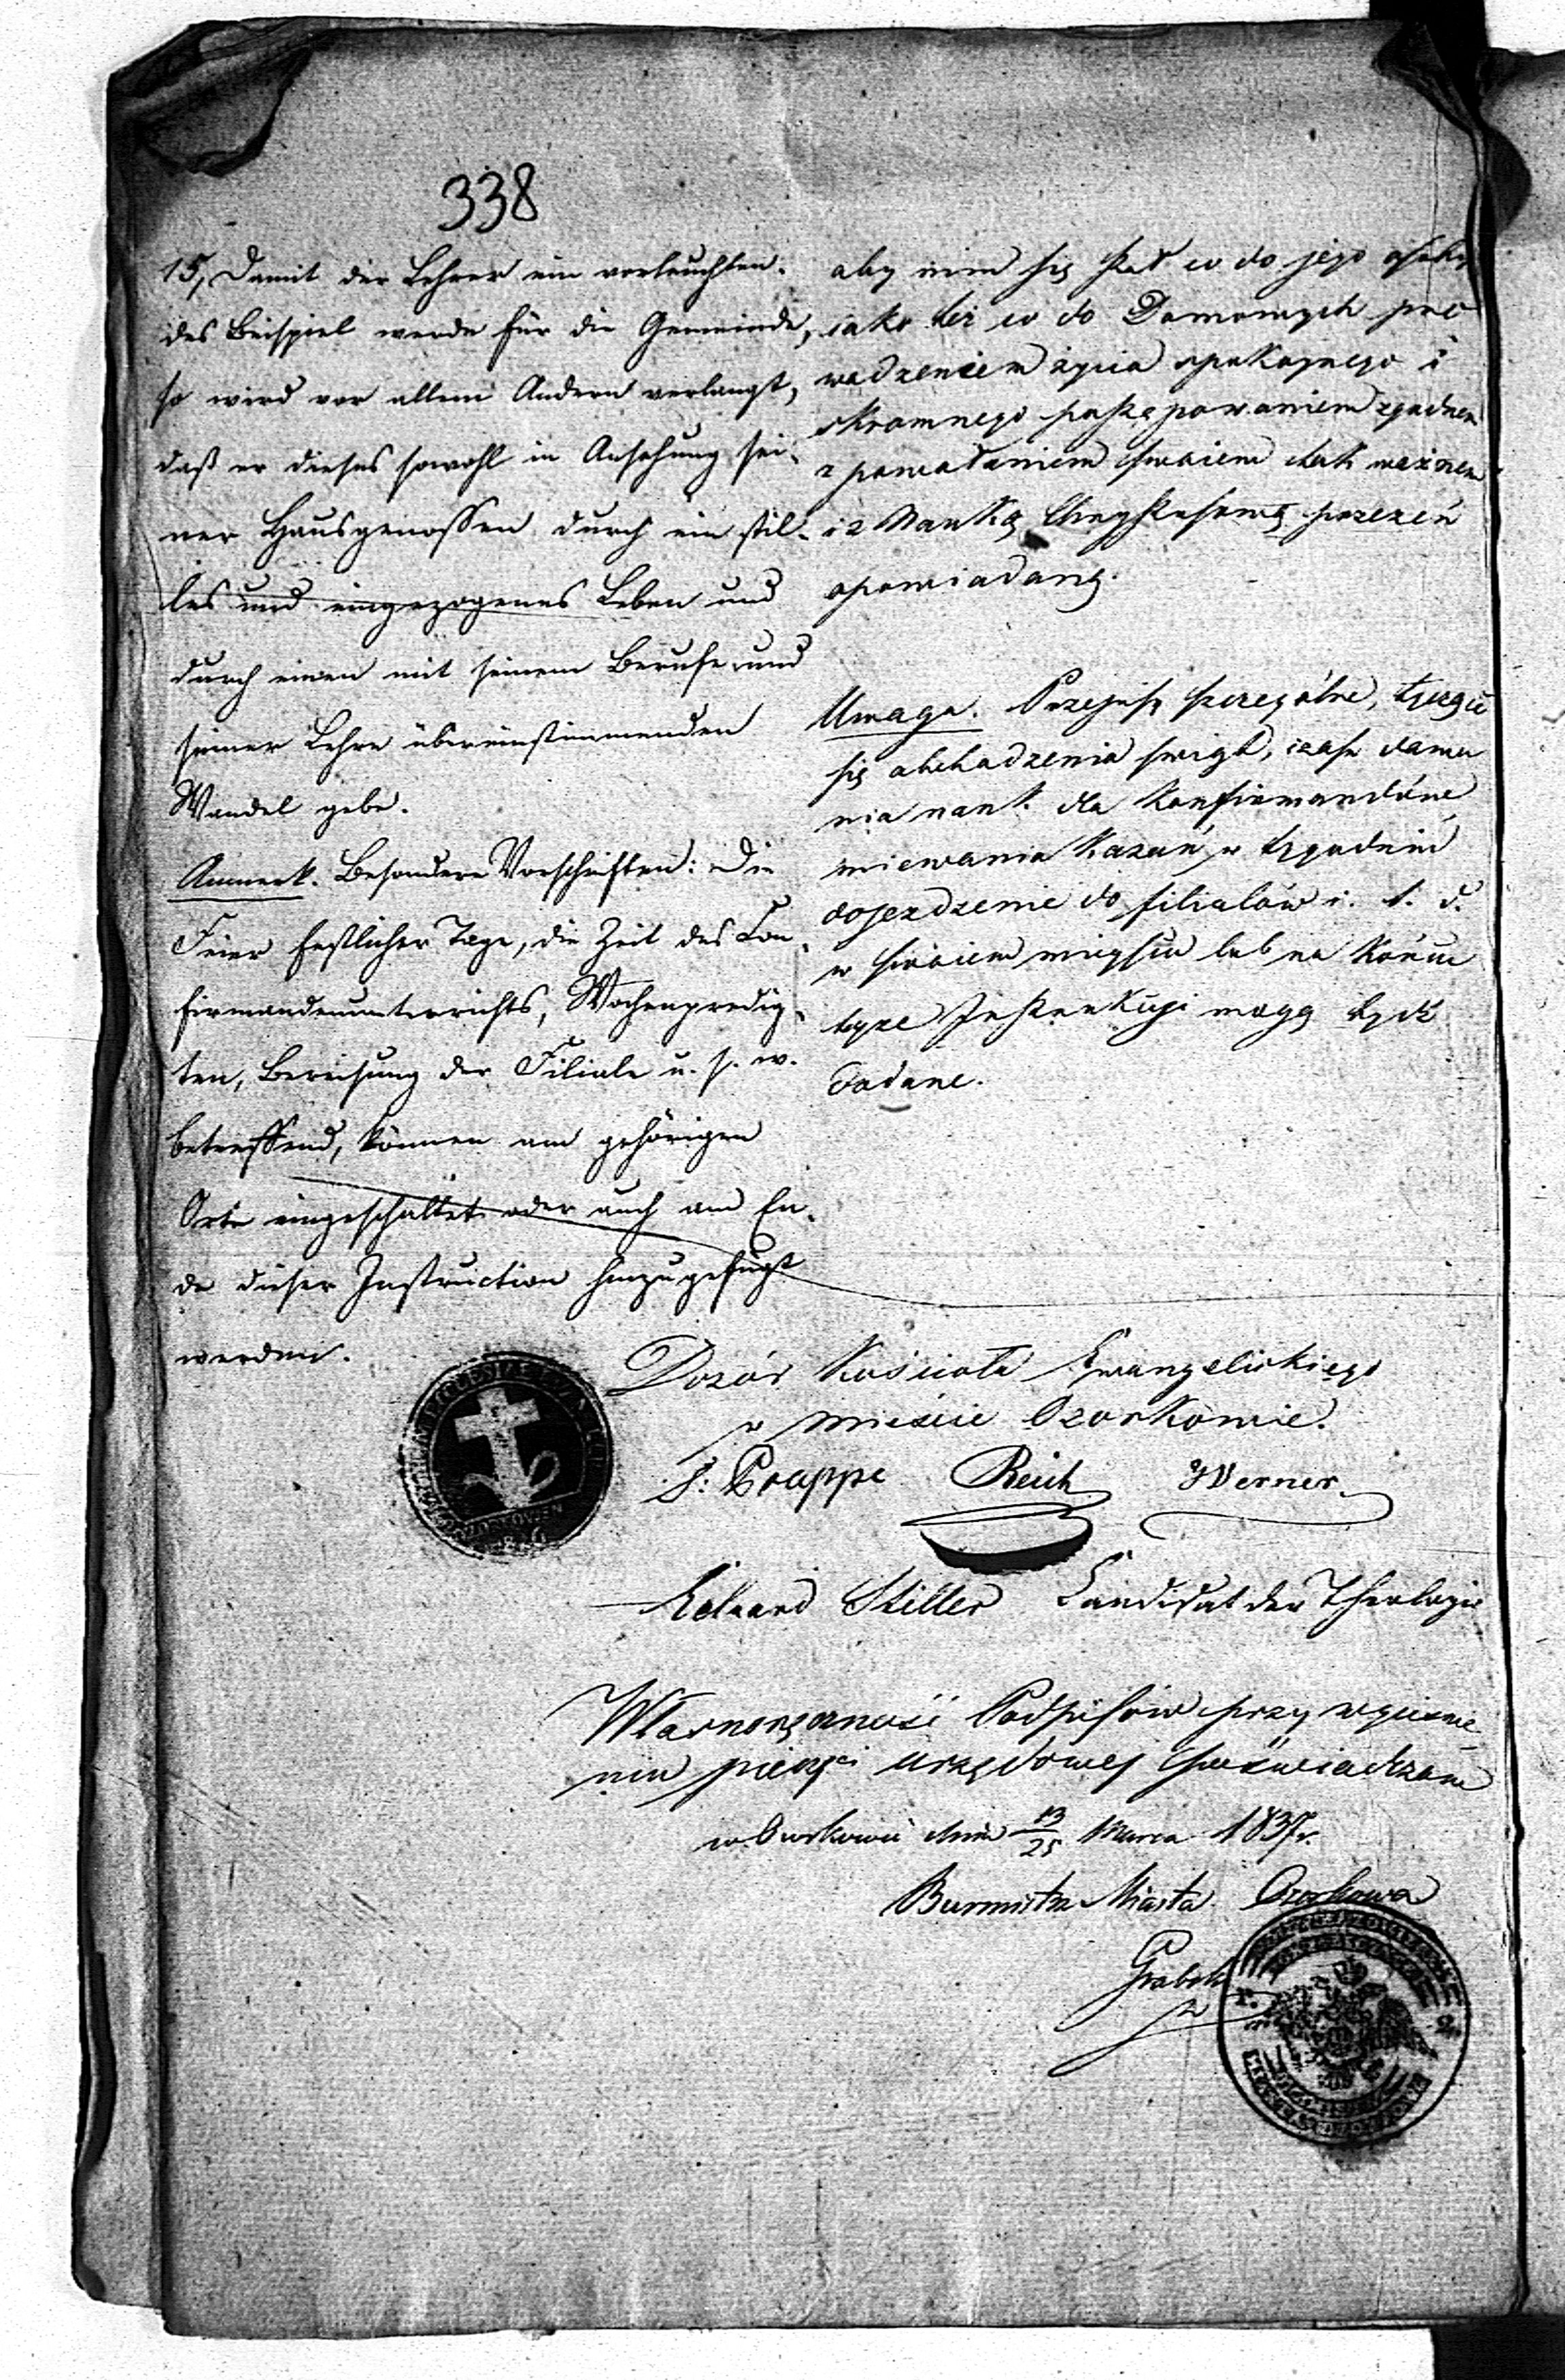 338
15, Damit der Lehrer ein vorleuchten-
des Beispiel werde für die Gemeinde,
so wird vor allem Andern verlangt,
daß er dieses sowohl in Ansehung sei-
ner Hausgenossen durch ein stil-
les und eingezogenes Leben und
durch einen mit seinem Berufe und
seiner Lehre übereinstimmenden
Wandel gebe.
Anmerk. Besondere Vorschriften: die
Feier festlicher Tage, die Zeit des Con-
firmandenunterrichts, Wochenpredig-
ten, Bereisung der Filiale u. s. w.
betreffend, können am gehörigen
Orte eingeschaltet oder auch am En-
de dieser Instruction hinzugefügt
werden.
aby nim się stał co do jego osoby
iako też co do Domowych pro
wadzeniem życia spokojnego i
skromnego postępowaniem zgodnem
z powołaniem swoiem tak ważnem
i z Nauką Chrystusową przezeń
opowiadaną.
Uwaga. Przepisy szczególne, tyczące
się obchodzenia świąt, czasu dawa
nia nauk dla Konfirmandów
miewania Kazań w tygodniu
dojezdzenie do filialów i. t. d.
w swoiem mieyscu lub na Końcu
teyże Instrukcyi mogą bydź
dodane.
Dozór Kościoła Ewangelickiego
w mieście Ozorkowie.
Prappe Reich Werner
Eduard Stiller Candidat der Theologie
Własnoręczność Podpisów przy wyciśnie
niu pieczęci urzędowej poświadczam
w Ozorkowie dnia 13/25 Marca 1837 r.
Burmistrz Miasta Ozorkowa